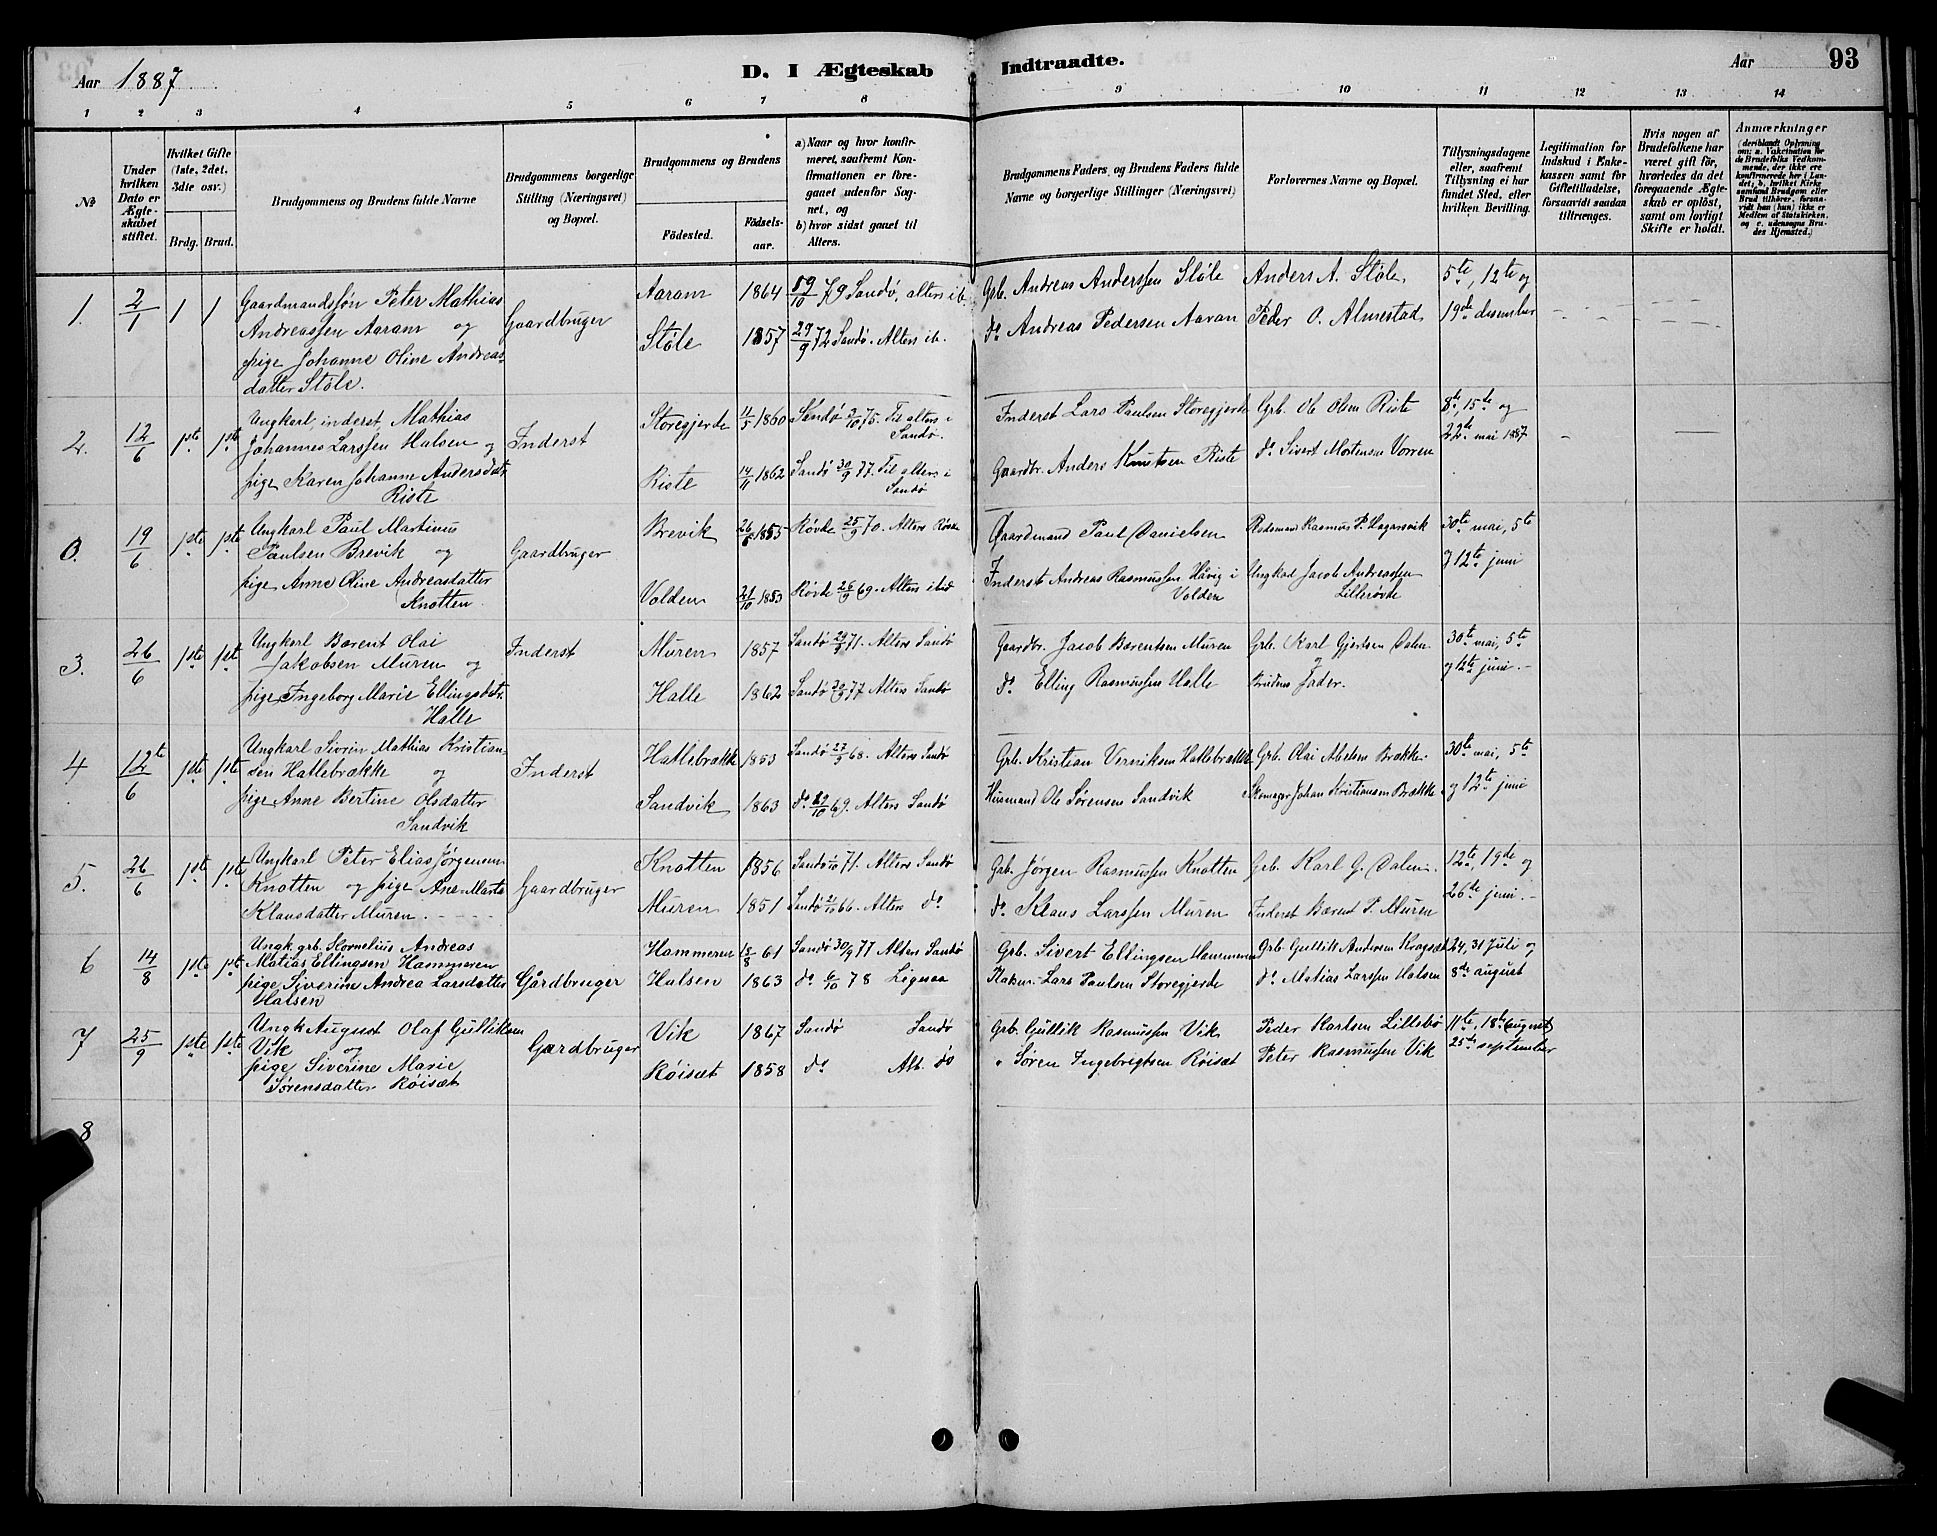 Aar 1887
D. I Ægteskab Indtraadte.
Aar
93
1 2 3 4 5 6 7 8 9 10 11 12 13 14
№
Under hvilken Dato er Ægteskabet stiftet.
Hvilket Gifte (1ste, 2det, 3die osv.)
Brdg. Brud.
Brudgommens og Brudens fulde Navne
Brudgommens borgerlige Stilling (Næringsvei) og Bopæl.
Brudgommens og Brudens
Födested.
Födsels-aar.
a) Naar og hvor konfirmeret, saafremt Konfirmationen er foregaaet udenfor Sognet, og
b) hvor sidst gaaet til Alters.
Brudgommens Faders, og Brudens Faders fulde Navne og borgerlige Stillinger (Næringsvei)
Forlovernes Navne og Bopæl.
Tillysningsdagene eller, saafremt Tillysning ei har fundet Sted, efter hvilken Bevilling.
Legitimation for Indskud i Enkekassen samt for Giftetilladelse, forsaavidt saadan tiltrænges.
Hvis nogen af Brudefolkene har været gift för, hvorledes da det foregaaende Ægteskab er oplöst, samt om lovligt Skifte er holdt.
Anmærkninger (deriblandt Oplysning om: a. Vakcination for de Brudefolks Vedkommende, der ikke ere konfirmerede her i Landet; b. hvilket Kirkesamfund Brudgom eller Brud tilhörer, forsaavidt han (hun) ikke er Medlem af Statskirken, og c. udensogns Brudes Hjemsted.)
1. 2/1 1 1
Gaardmandsføn Peter Mathias
Andreassen Aaram og
pige Johanne Oline Andreas
datter Støle.
Gaardbruger
Aaram 1864 /10 79 Sandø, alters ib.
Støle 1857 29/9 72 Sandø. Alters ib.
Grb. Andreas Anderssen Støle
do Andreas Pedersen Aaram
Anders A. Støle,
Peder O. Almestad
5te, 12te og
19de desember
2. 12/6 1ste 1ste
Ungkarl, inderst, Mathias
Johannes Larssen Halsen og
pige Karen Johanne Andersdat.
Riste
Inderst
Storegjerde 11/5 1860 Sandø /10 75. Til alters i
Sandø.
Riste 14/11 1862 Sandø 30/9 77. Til alters i
Sandø
Inderst Lars Paulsen Storegjerde
Gaardbr. Anders Knutsen Riste
Grb. Ole Olsen Riste
do Sivert Mortensen Vorren
8de, 15te og
22de mai 1887
0. 19/6 1ste 1ste
Ungkarl Paul Martinus
Paulsen Brevik og
pige Anne Oline Andreasdatter
Knotten.
Gaardbruger
Brevik 26/6 1855 Røvde 25/9 70. Alters Røvde
Volden 21/10 1853 Røvde 26/9 69. Alters ibid
Gaardmand Paul Danielsen
Inderst Andreas Rasmussen Håvig i
Volden
Rasmus P. Hagarsvik
Ungkarl Jacob Andreassen
Lillerøvde
30te mai, 5te
og 12te juni
3. 26/6 1ste 1ste
Ungkarl Bærent Olai
Jakobsen Muren og
pige Ingeborg Marie Ellingsdatr.
Halle
Inderst
Muren 1857 Sandø 29/9 71. Alters Sandø
Halle 1862 Sandø 30/9 77 Alters Sandø
Gaardbr. Jacob Bærentsen Muren
do Elling Rasmussen Halle
Grb. Karl Gjertsen Dalen
og
Brudens Fader.
30te mai, 5te
og 12te juni. –
4 12te/6 1ste 1ste
Ungkarl Sivrin Mathias Kristian-
sen Hatlebrække og
pige Anne Bertine Olsdatter
Sandvik
Inderst
Hatlebrække 1853 Sandø 27/9 68. Alters Sandø
Sandvik 1863 do /10 69. Alters Sandø
Grb. Kristian Verniksen Hatlebrække
Husmand Ole Sørensen Sandvik
Grb. Olai Abelsen Brække
Skomager Johan Kristiansen Brække
30te mai, 5te
og 12te juni
5. 26/6 1ste 1ste
Ungkarl Peter Elias Jørgensen
Knotten og pige Ane Marte
Klausdatter Muren.
Gaardbruger
Knotten 1856 Sandø 1/10 71. Alters Sandø
Muren 1851 Sandø /10 66. Alters do
Grb. Jørgen Rasmussen Knotten
do Klaus Larssen Muren
Grb. Karl G. Dalen.
Inderst Bærent P. Muren
12te, 19de og
26de juni. –
6 14/8 1ste 1ste
Ungk. grb. Kornelius Andreas
Matias Ellingsen Hammeren
pige Siverine Andrea Larsdatter
Halsen
Gårdbruger
Hammeren /8 61 Sandø 30/9 77 Alters Sandø
Halsen 1863 do 6/10 78 Ligesaa
Grb. Sivert Ellingsen Hammeren
Lars Paulsen Storegjerde
Grb. Gullik Andersen Kragset
do Matias Larssen Halsen
24, 31 Juli og
8de august
7 25/9 1ste 1ste
Ungk August Olaf Gulliksen
Vik og
pige Siverine Marie
Sørensdatter Røisæt
Gardbruger
Vik 1867 Sandø Sandø
Røisæt 1858 do Alt. do
Grb. Gullik Rasmussen Vik
" Søren Ingebrigtsen Røisæt
Peder Karlsen Lillebø
Peter Rasmussen Vik
11te, 18de August
25de september
8